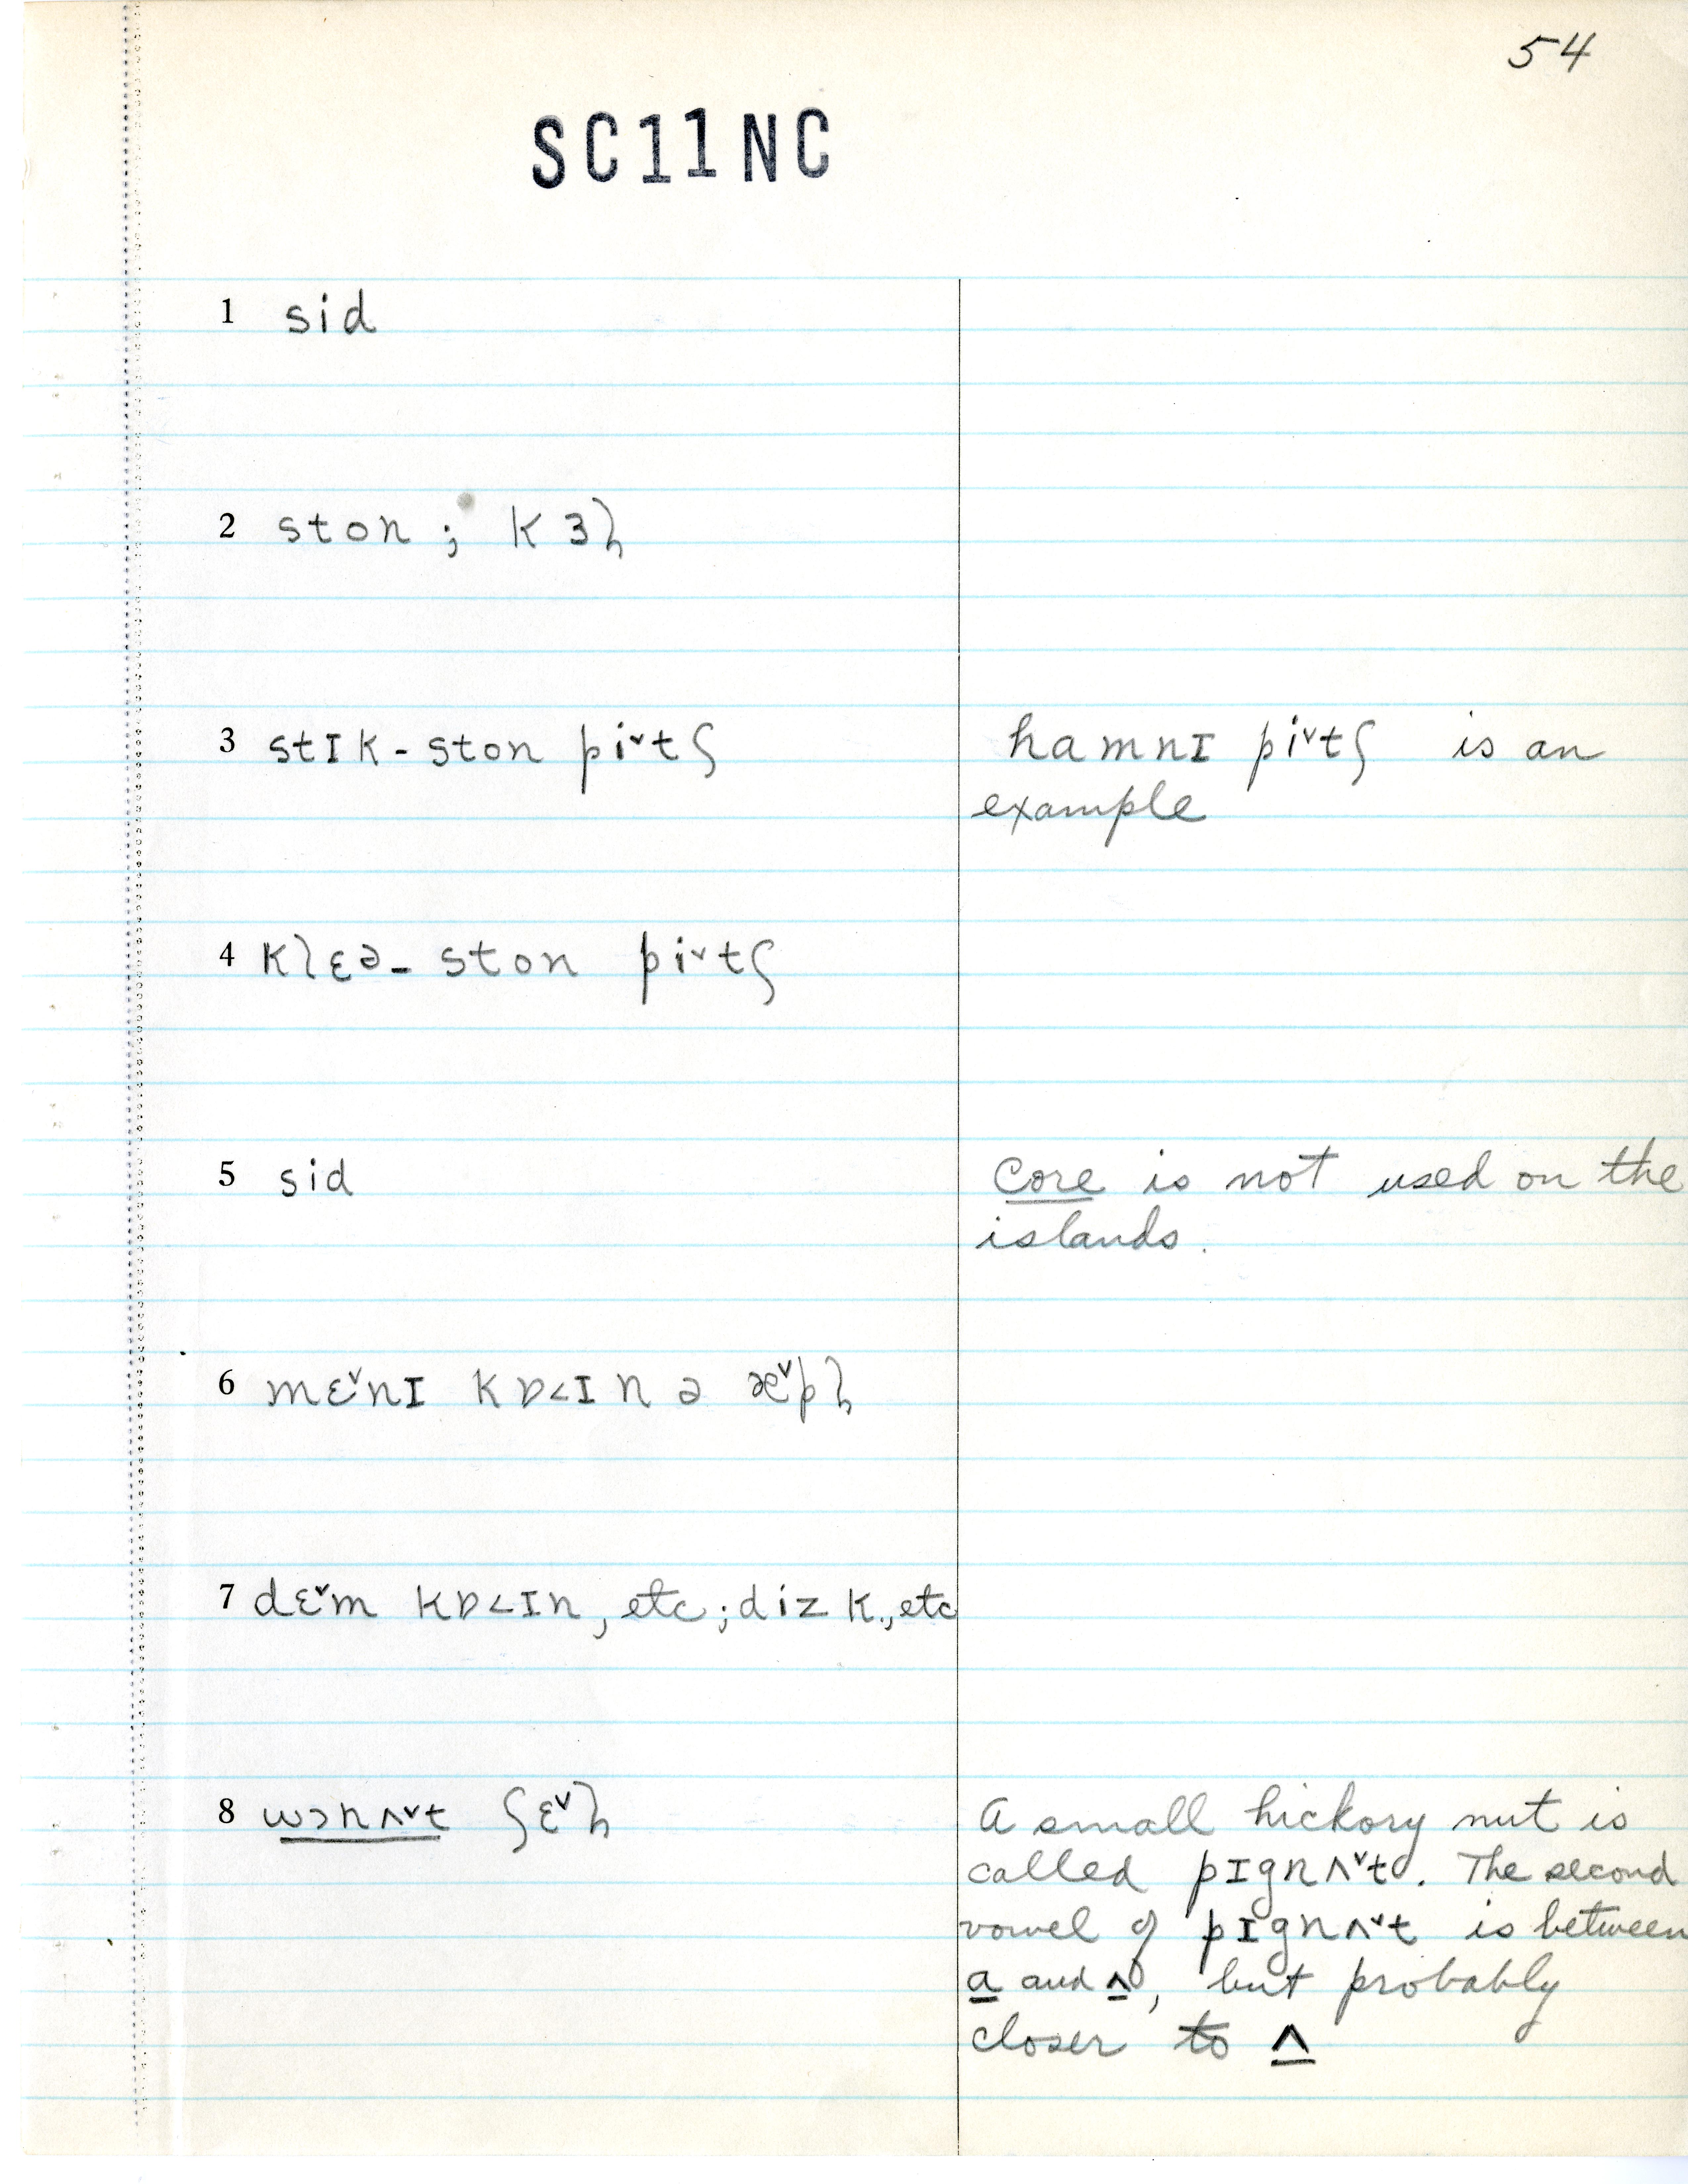 54
SC11NC
1 sid
2 ston ; kɜɫ
3 stɪk - ston pi˅tʃ hamnɪ pi˅tʃ is an
example
4 klɛə - ston pi˅tʃ
5 sid Core is not used on the
islands.
6 mɛ˅nɪ kɒ<ɪn ə æ˅pɫ
7 dɛ˅m kɒ<ɪn, etc; diz k., etc
8 wɔnʌ˅t ʃɛ˅ɫ A small hickory nut is
called pɪgnʌ˅t. The second
vowel of pɪgnʌ˅t is between
a and ʌ, but probably
closer to ʌ